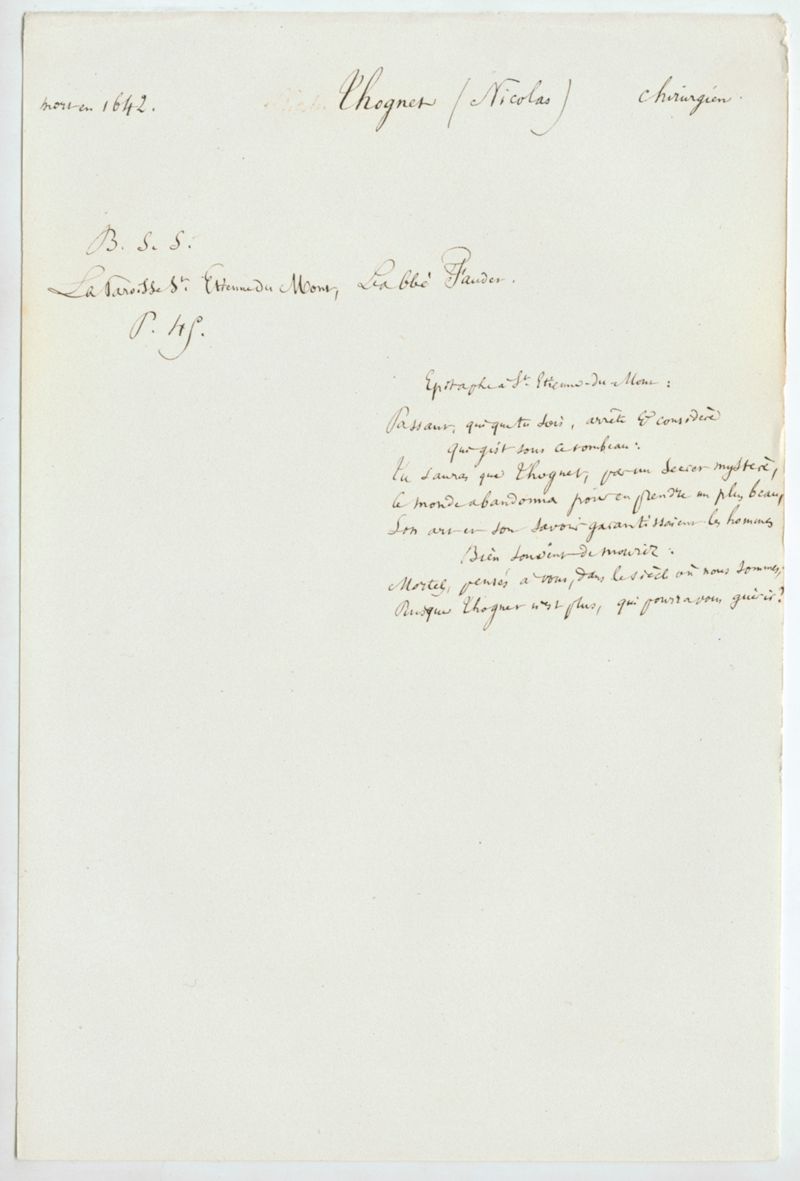 mort en 1642. Thognet (Nicolas) chirurgien.
B. S. S.
La Paroisse St. Etienne du Mont, L'abbé Faudet.
P. 45.
Epitaphe à St. Etienne-du-Mont :
Passant, qui que tu sois, arrête & considère
Qui gist sous ce tombeau :
Tu sauras que Thognet, par un secret mystère,
Le monde abandonna pour en prendre un plus beau,
Son art et son savoir garantissaient les hommes
Bien souvent de mourir :
Mortels, pensés à vous, dans le siècle où nous sommes,
Puisque Thognet n'est plus, qui pourra vous guérir ?